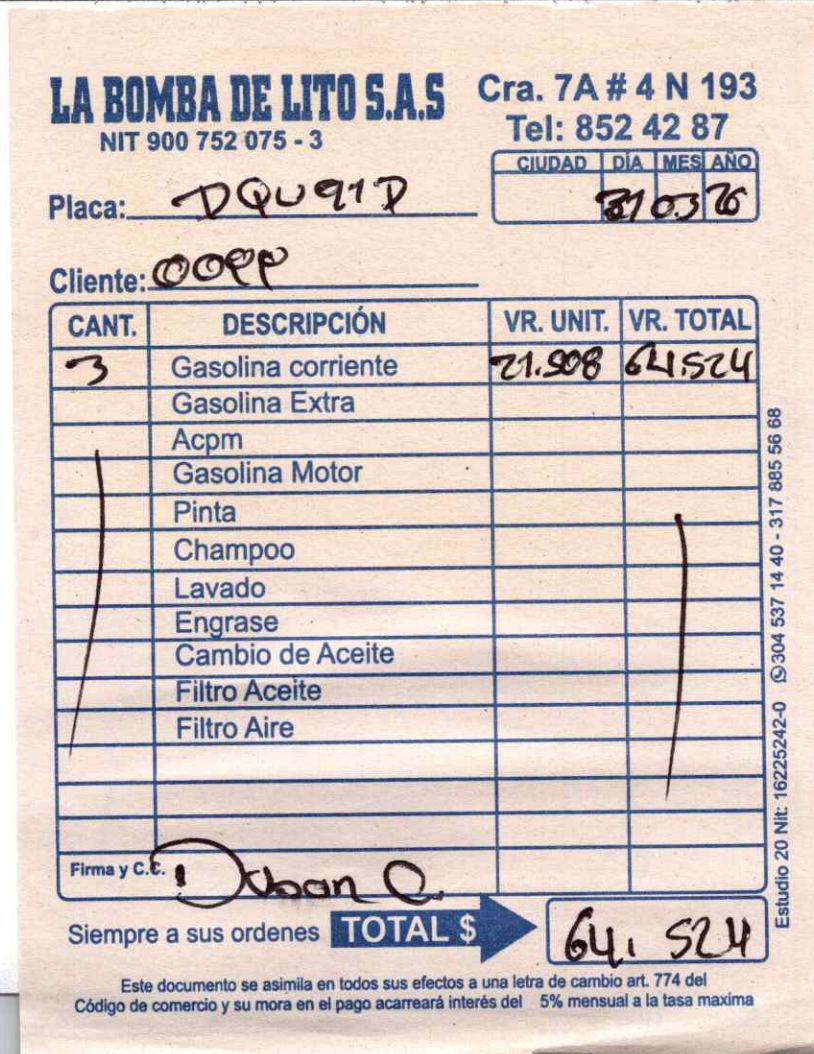 LA BOMBA DE LITO S.A.S
NIT 900 752 075 - 3
Cra. 7A # 4 N 193
Tel: 852 42 87
CIUDAD DÍA MES AÑO
31 03 26
Placa: DQU91D
Cliente: OOPP
CANT. DESCRIPCIÓN VR. UNIT. VR. TOTAL
3 Gasolina corriente 21.508 64.524
Gasolina Extra
Acpm
Gasolina Motor
Pinta
Champoo
Lavado
Engrase
Cambio de Aceite
Filtro Aceite
Filtro Aire
Firma y C.C. Duban Q.
Siempre a sus ordenes TOTAL $ 64.524
Este documento se asimila en todos sus efectos a una letra de cambio art. 774 del
Código de comercio y su mora en el pago acarreará interés del 5% mensual a la tasa maxima
Estudio 20 Nit: 16225242-0 304 537 14 40 - 317 885 56 68